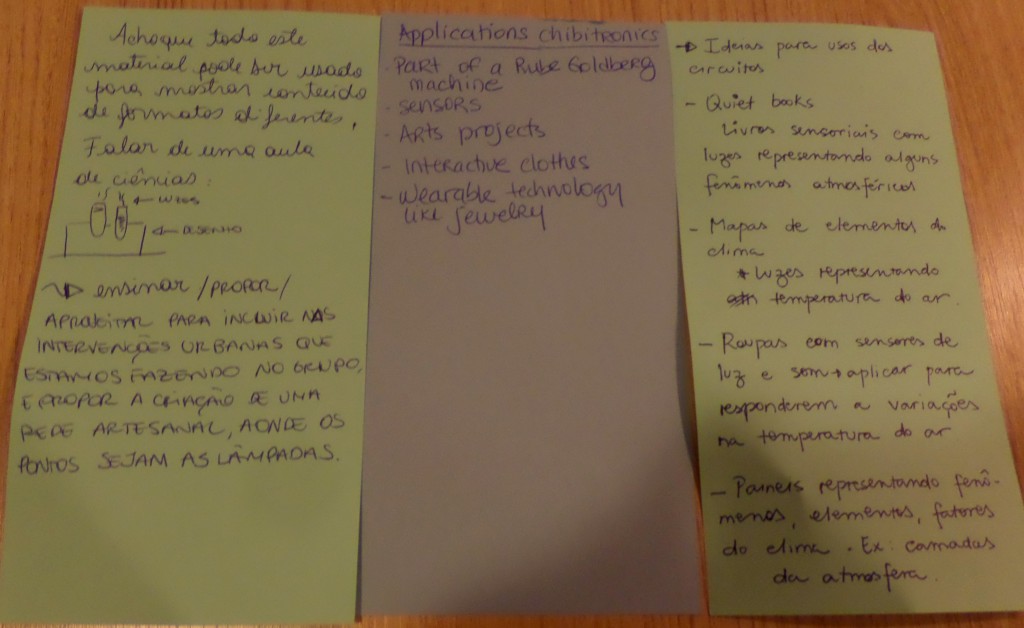 Acho que todo este
material pode ser usado
para mostrar conteúdo
de formatos diferentes.
Falar de uma aula
de ciências:
← LUZES
← DESENHO
→ ensinar / PROPOR /
APROVEITAR PARA INCLUIR NAS
INTERVENÇÕES URBANAS QUE
ESTAMOS FAZENDO NO GRUPO,
E PROPOR A CRIAÇÃO DE UMA
REDE ARTESANAL, AONDE OS
PONTOS SEJAM AS LÂMPADAS.
Applications chibitronics
- Part of a Rube Goldberg
machine
- SENSORS
- ARTS projects
- Interactive clothes
- Wearable technology
like jewelry
→ Ideias para usos dos
circuitos
- Quiet books
Livros sensoriais com
luzes representando alguns
fenômenos atmosféricos
- Mapas de elementos do
clima
* Luzes representando
temperatura do ar.
- Roupas com sensores de
luz e som → aplicar para
responderem a variações
na temperatura do ar
- Paineis representando fenô-
menos, elementos, fatores
do clima. Ex: camadas
da atmosfera.